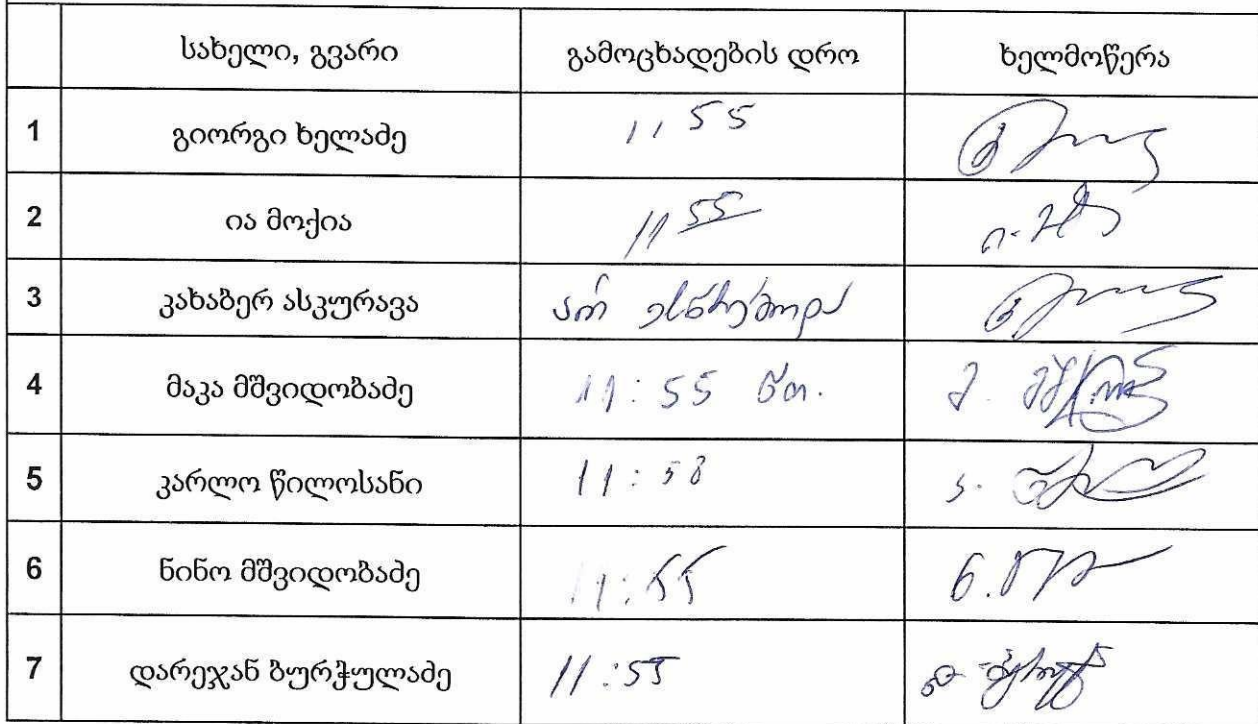 სახელი, გვარი გამოცხადების დრო ხელმოწერა
1 გიორგი ხელაძე 11 55
2 ია მოქია 11 55
3 კახაბერ ასკურავა არ ესწრებოდა
4 მაკა მშვიდობაძე 11:55 წთ.
5 კარლო წილოსანი 11:58
6 ნინო მშვიდობაძე 11:55
7 დარეჯან ბურჭულაძე 11:55